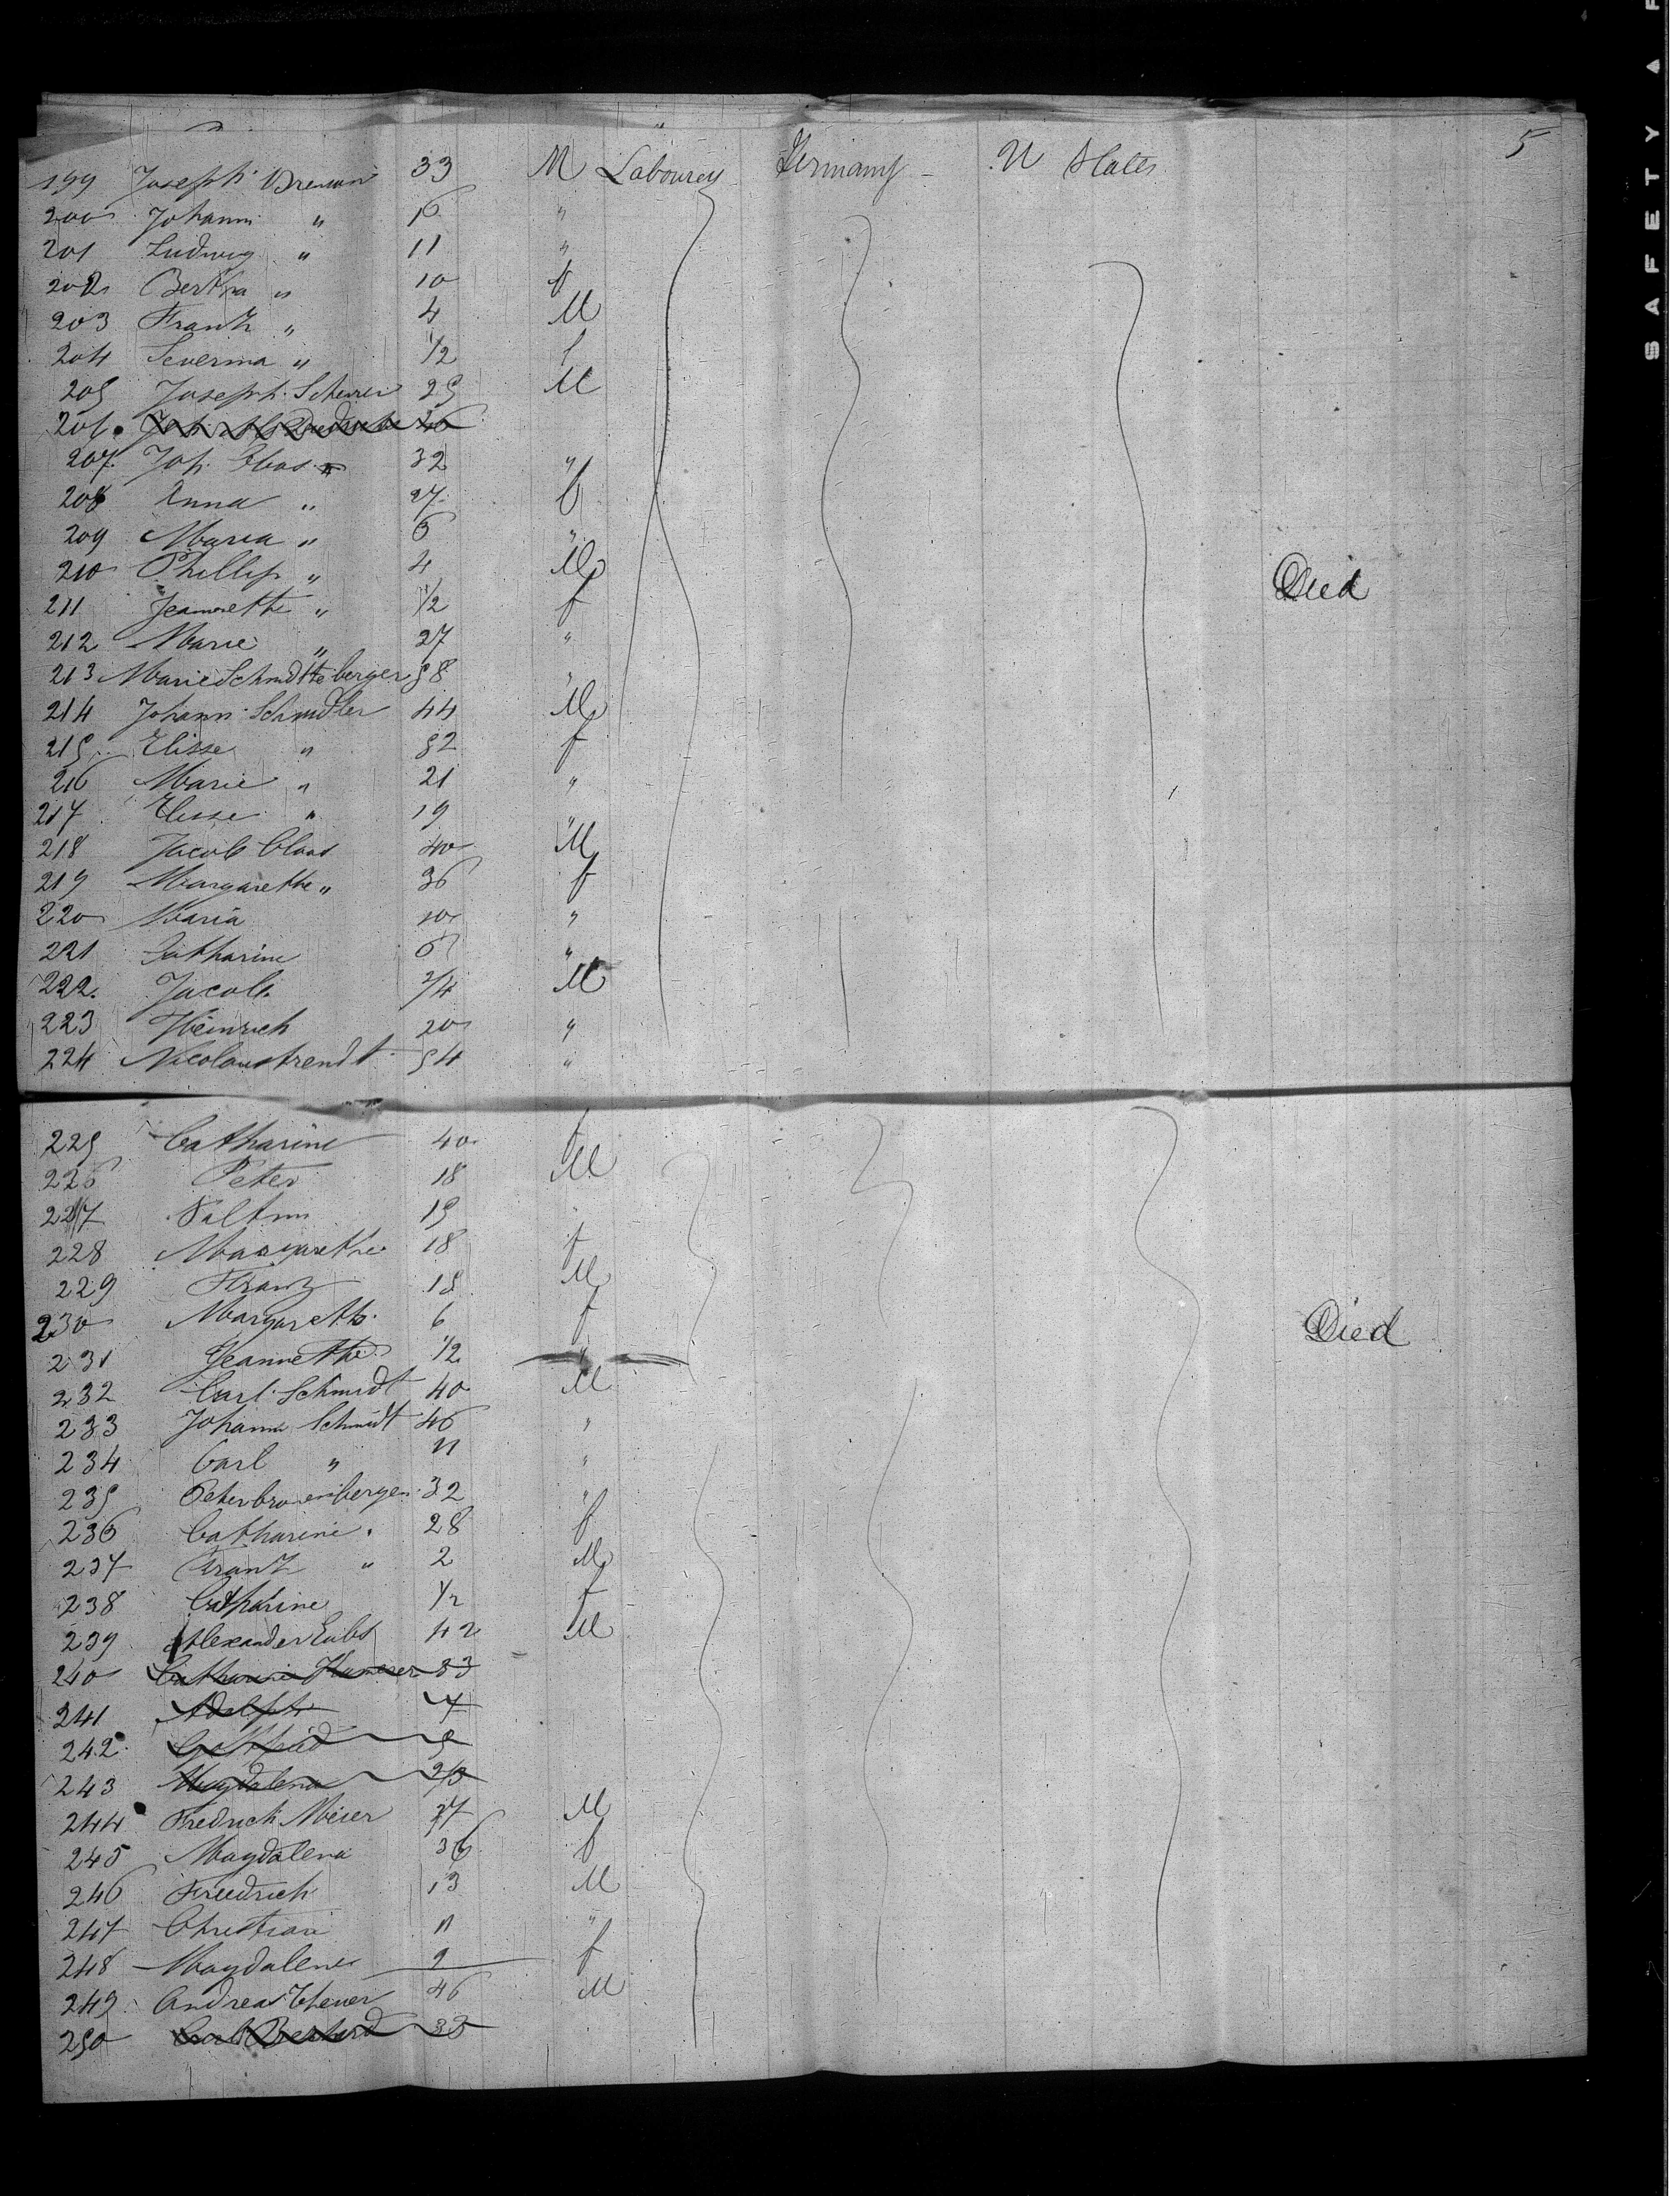 5
199 Joseph Breman 33 M Labourer Germany U States
200 Johann " 16 "
201 Ludwig " 11 "
202 Bertha " 10 f
203 Frantz " 4 M
204 Severina " 1/2 f
205 Joseph Scherer 25 M
206
207 Joh. Claas " 32 "
208 Anna " 27 f
209 Maria " 6 "
210 Phillip " 4 M
211 Jeannette " 1/2 f Died
212 Marie " 27 "
213 Marie Schmidtteberger 58 "
214 Johann Schindler 44 M
215 Elisse " 52 f
216 Marie " 21 "
217 Elisse " 19 "
218 Jacob Claas 40 M
219 Margarethe " 36 f
220 Maria 10 "
221 Catharine 6 "
222 Jacob 3/4 M
223 Heinrich 20 "
224 Nicolaus Arendt 54 "
225 Catharine 40 f
226 Peter 18 M
227 19 "
228 Margarethe 18 f
229 Franz 15 M
230 Margareth 6 f
231 Jeannette 1/2 " Died
232 Carl Schmidt 40 M
233 Johann Schmidt 46 "
234 Carl " 11 "
235 Peter Cronenberger 32 "
236 Catharine " 28 f
237 Frantz " 2 M
238 Catharine 1/2 f
239 Alexander Eubs 42 M
240 Catharine Hamerer 33
241 Adolph 7
242 Gottfried 5
243 Magdalena 2/3
244 Fredrich Meier 37 M
245 Magdalena 36 f
246 Friedrich 13 M
247 Christian 11 "
248 Magdalena 9 f
249 Andreas Theuer 46 M
250 Carl 33
SAFETY